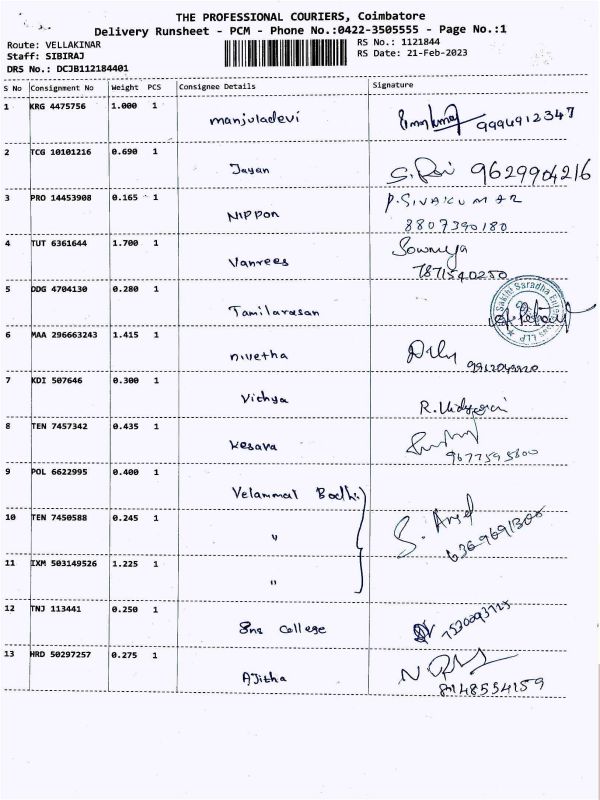 THE PROFESSIONAL COURIERS, Coimbatore
Delivery Runsheet - PCM - Phone No.:0422-3505555 - Page No.:1
Route: VELLAKINAR
RS No.: 1121844
Staff: SIBIRAJ
RS Date: 21-Feb-2023
DRS No.: DCJB112184401
S No Consignment No Weight PCS Consignee Details Signature
1 KRG 4475756 1.000 1
manjuladevi 9994912347
2 TCG 10101216 0.690 1
Jayan 9629904216
3 PRO 14453908 0.165 1 P.SIVAKUMAR
NIPPON 8807390180
4 TUT 6361644 1.700 1 Sowmya
Vanrees 7871540250
5 DDG 4704130 0.280 1
Tamilarasan
6 MAA 296663243 1.415 1
nivetha
7 KDI 507646 0.300 1
Vithya
8 TEN 7457342 0.435 1
Kesava
9 POL 6622995 0.400 1
Velammal Bodhi
10 TEN 7450588 0.245 1
"
11 IXM 503149526 1.225 1
"
12 TNJ 113441 0.250 1
Sns College
13 HRD 50297257 0.275 1
AJitha 8148554159